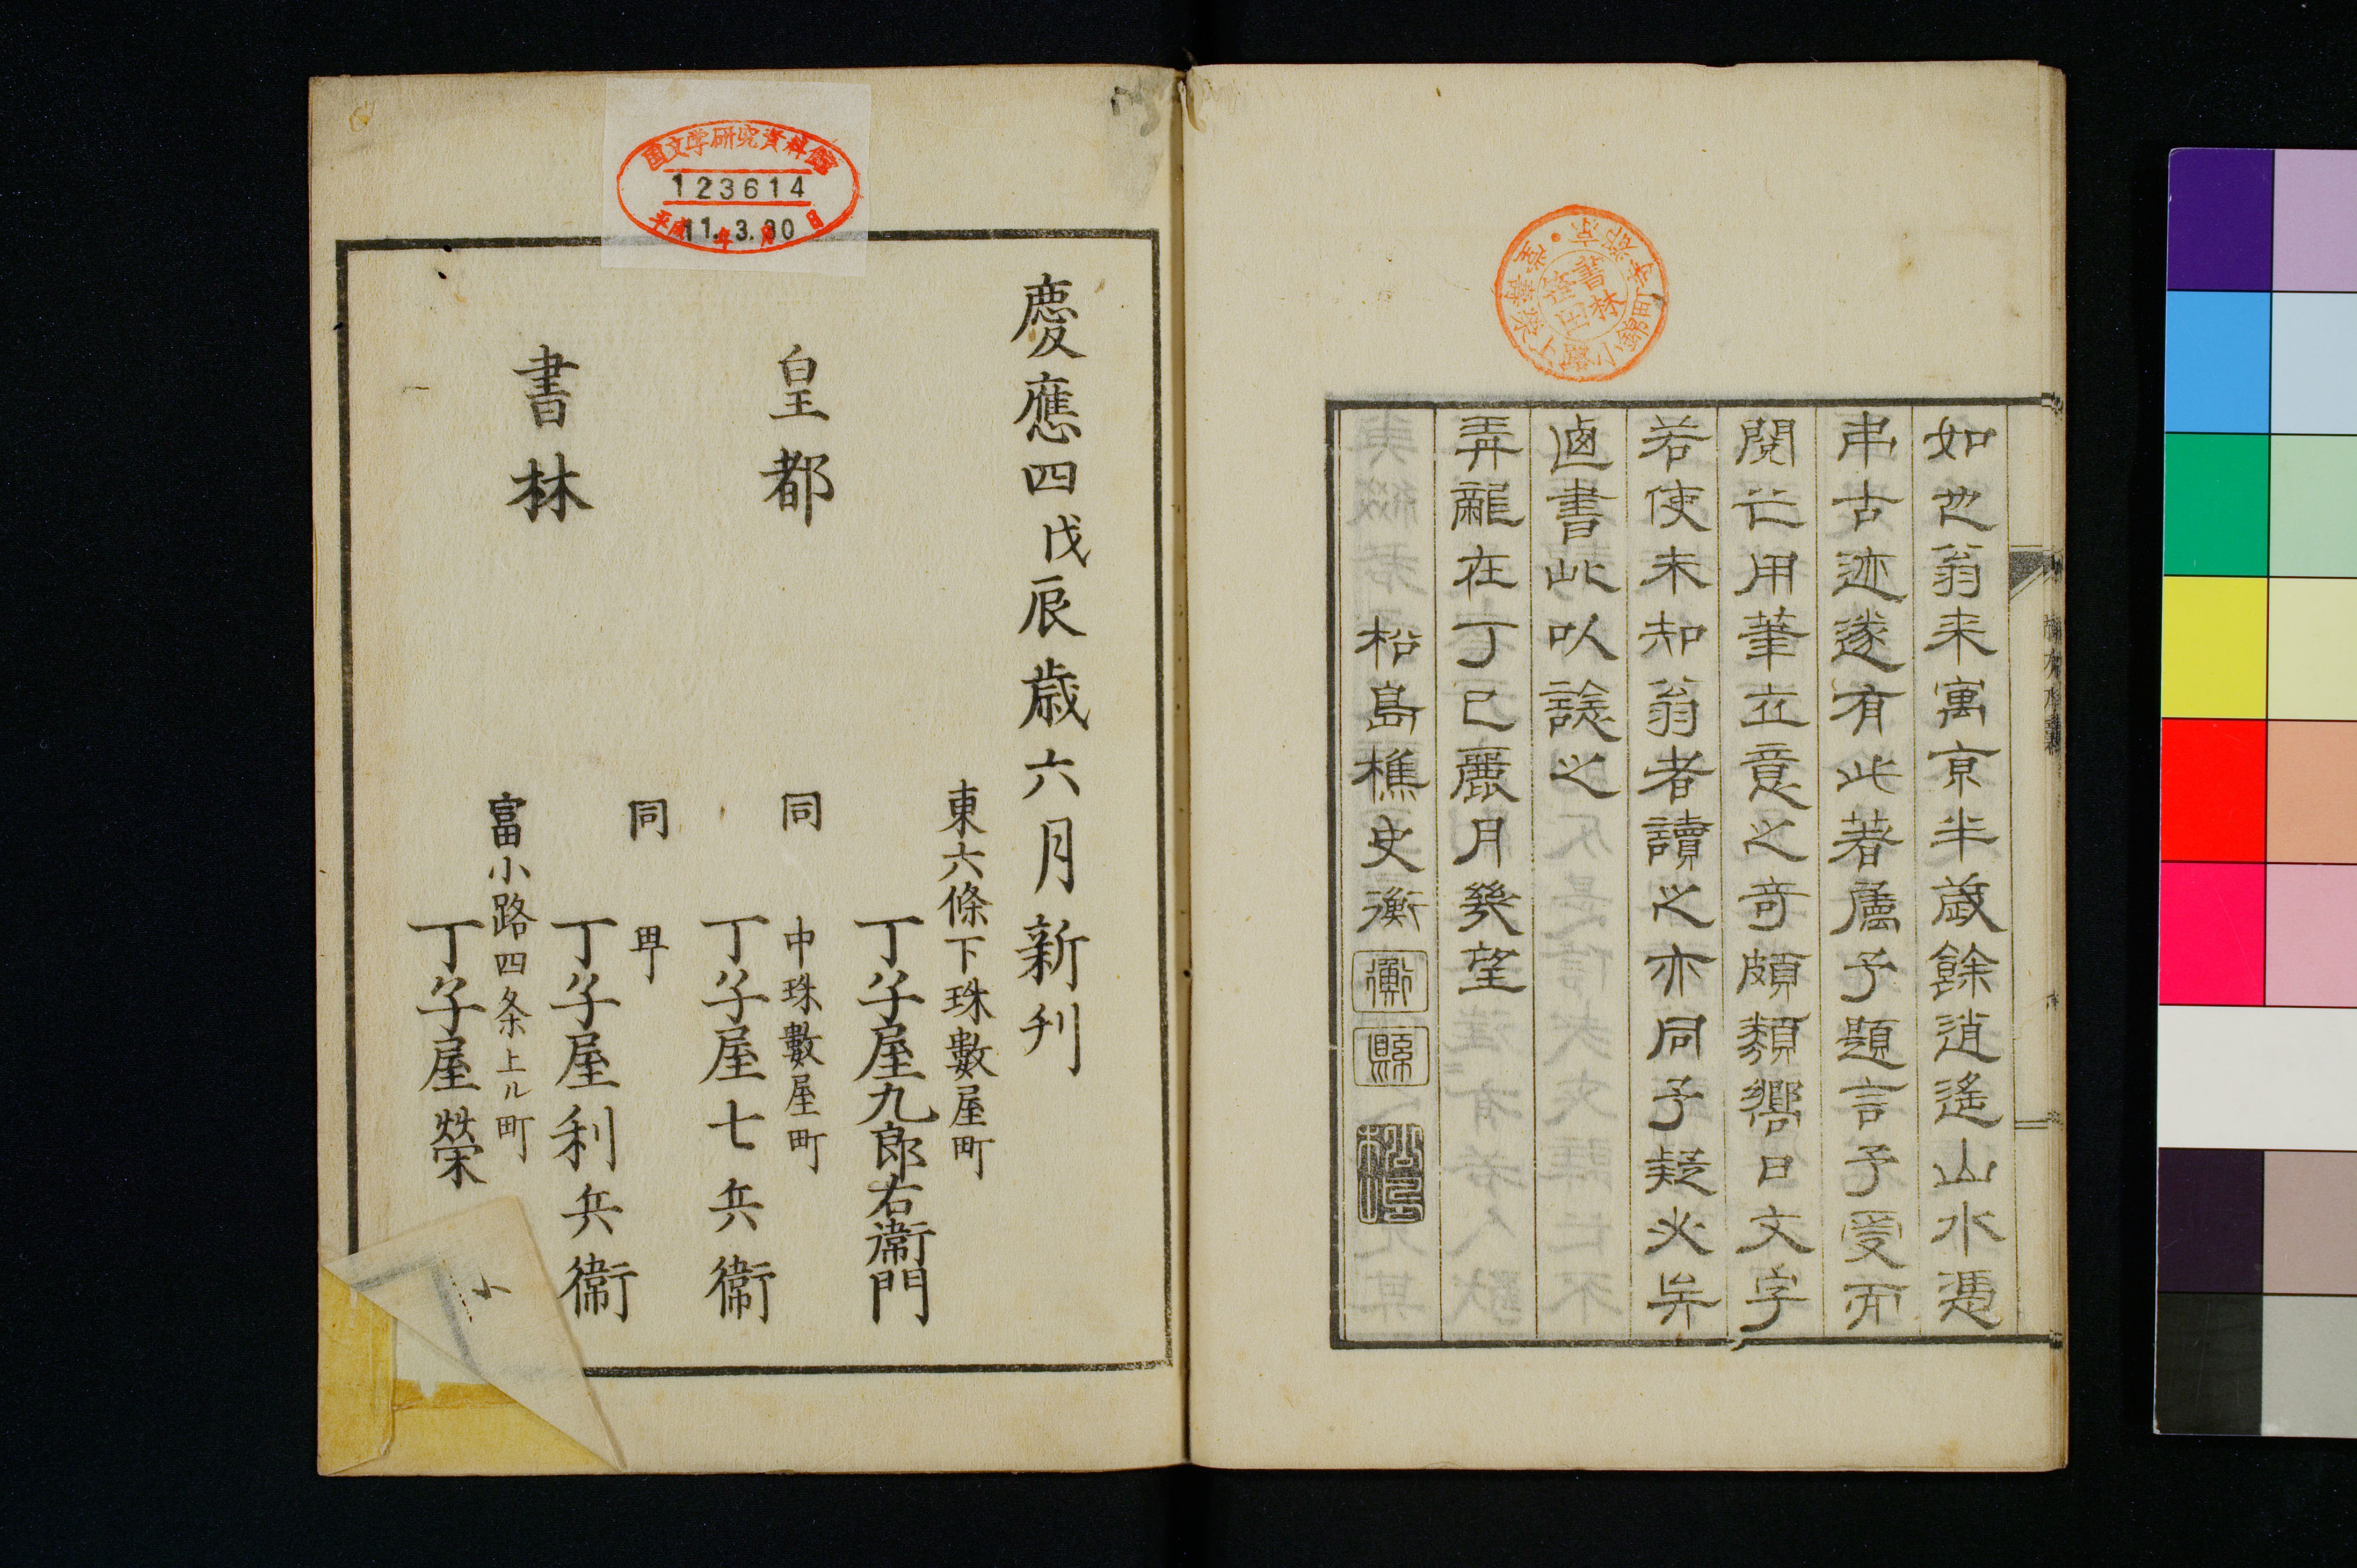 如也翁来寓京半歳餘逍遙山水憑
弔古迹遂有此著属予題言予受而
閱之用筆立意之奇頗類嚮日文字
若使未知翁者讀之亦同予疑必矣
書此以諗之
龍在丁巳麗月幾望
松島樵史衡
衡
縣
慶應四戊辰歳六月新刋
皇都
書林
東六條下珠數屋町
丁子屋九郎右衞門
同 中珠數屋町
丁子屋七兵衞
同 町
丁子屋利兵衞
富小路四条上ル町
丁子屋榮
国文学研究資料館
123614
平成 11年 3.月30日